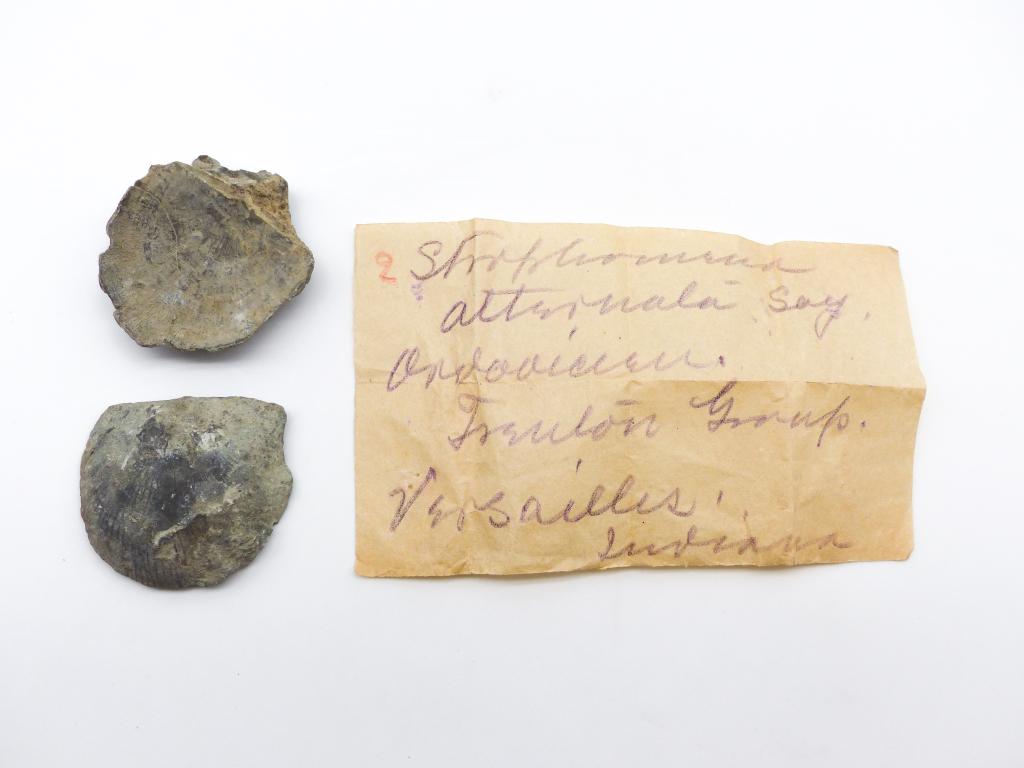 2 Strophomena
alternata Say.
Ordovician.
Trenton Group.
Versailles.
Indiana